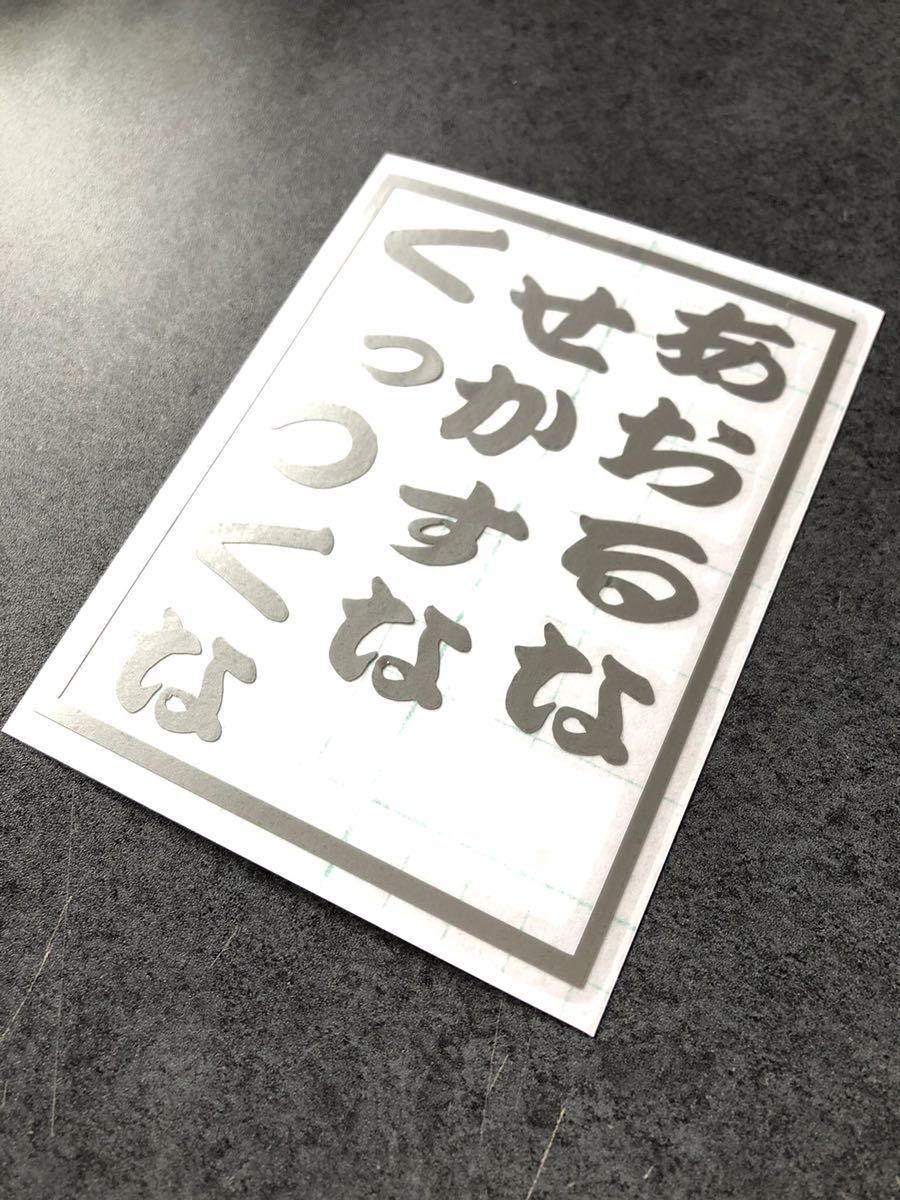 あおるな
せかすな
くっつくな